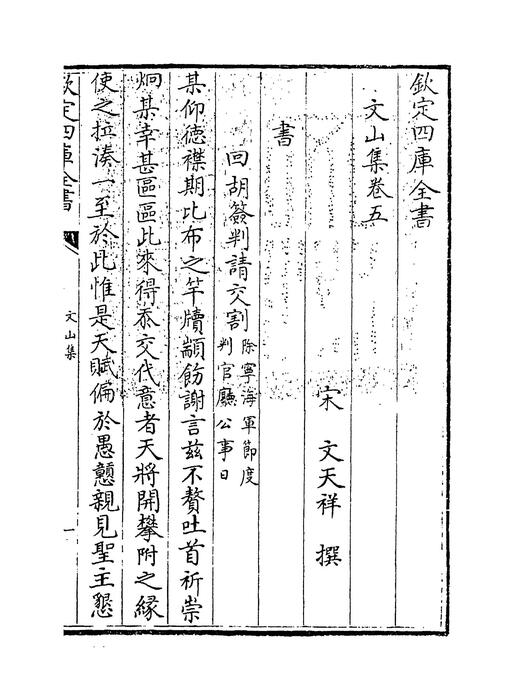 欽定四庫全書
文山集卷五
宋 文天祥 撰
書
回胡簽判請交割除寧海軍節度判官廳公事日
某仰徳襟期比布之竿牘顓飭謝言兹不贅吐首祈崇
炯某幸甚區區此來得忝交代意者天將開攀附之縁
使之拉湊一至於此惟是天賦偏於愚戇親見聖主懇
欽定四庫全書
文山集
一